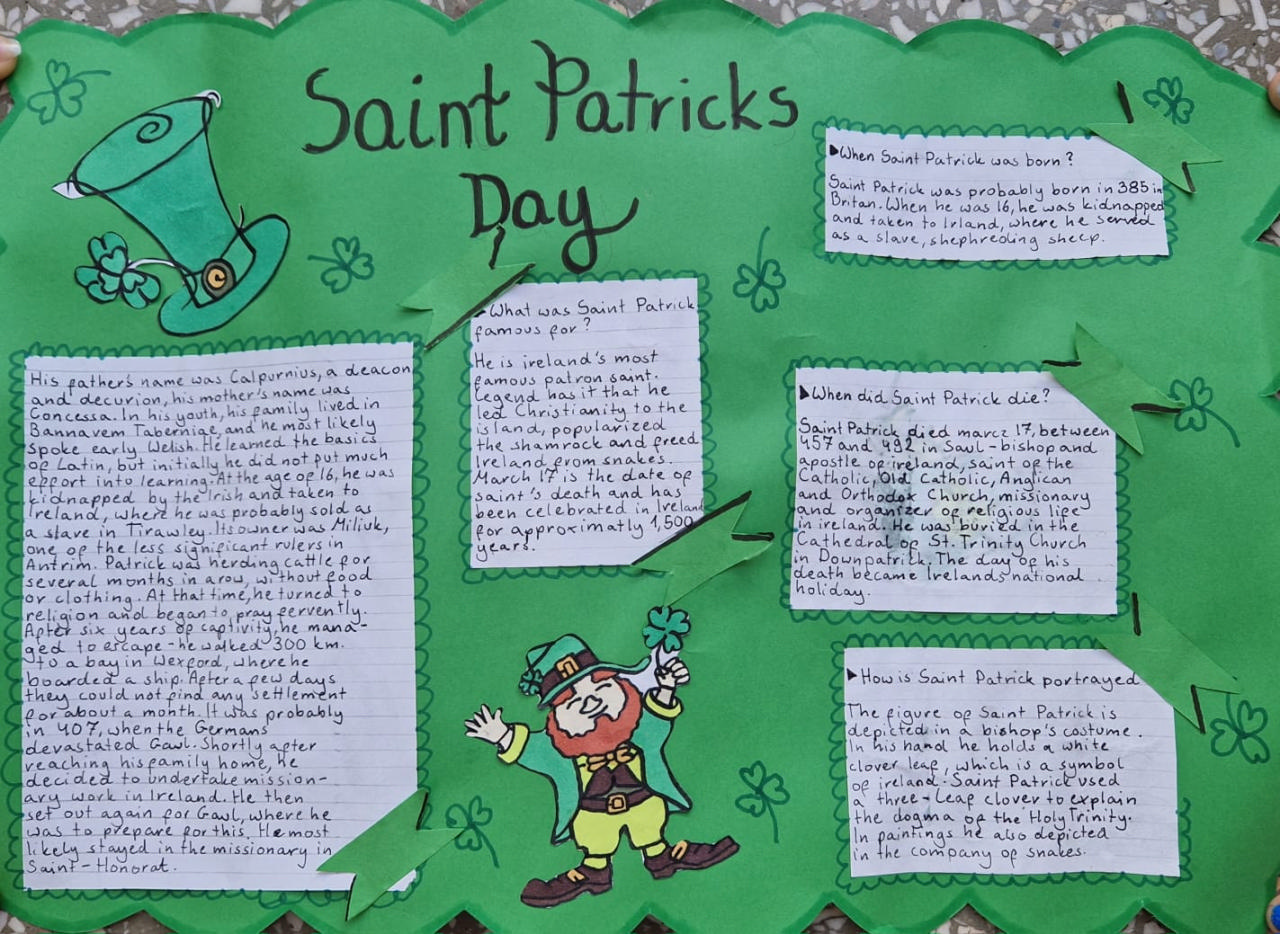 Saint Patricks
Day
▶When Saint Patrick was born?
Saint Patrick was probably born in 385 in
Britan. When he was 16, he was kidnapped
and taken to Irland, where he served
as a slave, shephreding sheep.
What was Saint Patrick
famous for?
He is ireland's most
famous patron saint.
Legend has it that he
led Christianity to the
island, popularized
the shamrock and freed
Ireland from snakes.
March 17 is the date of
saint's death and has
been celebrated in Ireland
for approximatly 1,500
years.
His father's name was Calpurnius, a deacon
and decurion, his mother's name was
Concessa. In his youth, his family lived in
Bannavem Taberniae, and he most likely
spoke early Welish. He learned the basics
of Latin, but initially he did not put much
effort into learning. At the age of 16, he was
kidnapped by the Irish and taken to
Ireland, where he was probably sold as
a slave in Tirawley. Its owner was Miliuk,
one of the less significant rulers in
Antrim. Patrick was herding cattle for
several months in a row, without food
or clothing. At that time, he turned to
religion and began to pray fervently.
After six years of captivity, he mana-
ged to escape - he walked 300 km.
to a bay in Wexford, where he
boarded a ship. After a few days
they could not find any settlement
for about a month. It was probably
in 407, when the Germans
devastated Gawl. Shortly after
reaching his family home, he
decided to undertake mission-
ary work in Ireland. He then
set out again for Gawl, where he
was to prepare for this. He most
likely stayed in the missionary in
Saint-Honorat.
▶When did Saint Patrick die?
Saint Patrick died marcz 17, between
457 and 492 in Saul - bishop and
apostle of ireland, saint of the
Catholic, Old Catholic, Anglican
and Orthodox Church, missionary
and organizer of religious life
in ireland. He was buried in the
Cathedral of St. Trinity Church
in Downpatrik. The day of his
death became Irelands national
holiday.
▶How is Saint Patrick portrayed
The figure of Saint Patrick is
depicted in a bishop's costume.
In his hand he holds a white
clover leaf, which is a symbol
of ireland. Saint Patrick used
a three-leaf clover to explain
the dogma of the Holy Trinity.
In paintings he also depicted
in the company of snakes.